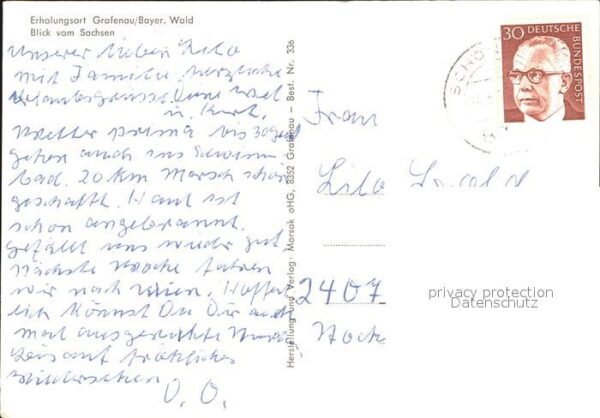 Erholungsort Grafenau/Bayer. Wald
Blick vom Sachsen
Unserer lieben Lilo
mit Familie herzliche
Urlaubsgrüsse
u. Kurt.
Wetter prima bis 30 grad
gehen auch ins Schwimm
bad. 20 km Marsch schon
geschafft. Haut ist
schon angebrannt.
Gefällt uns wieder gut
nächste Woche fahren
wir nach Wien. Hoffent
lich könnst Du Dir auch
mal
auf fröhliches
Wiedersehen
O. O.
Herstellung und Verlag: Morsak oHG, 8352 Grafenau - Best. Nr. 336
30 DEUTSCHE BUNDESPOST
SCHÖ
Frau
Lilo
2407
privacy protection
Datenschutz